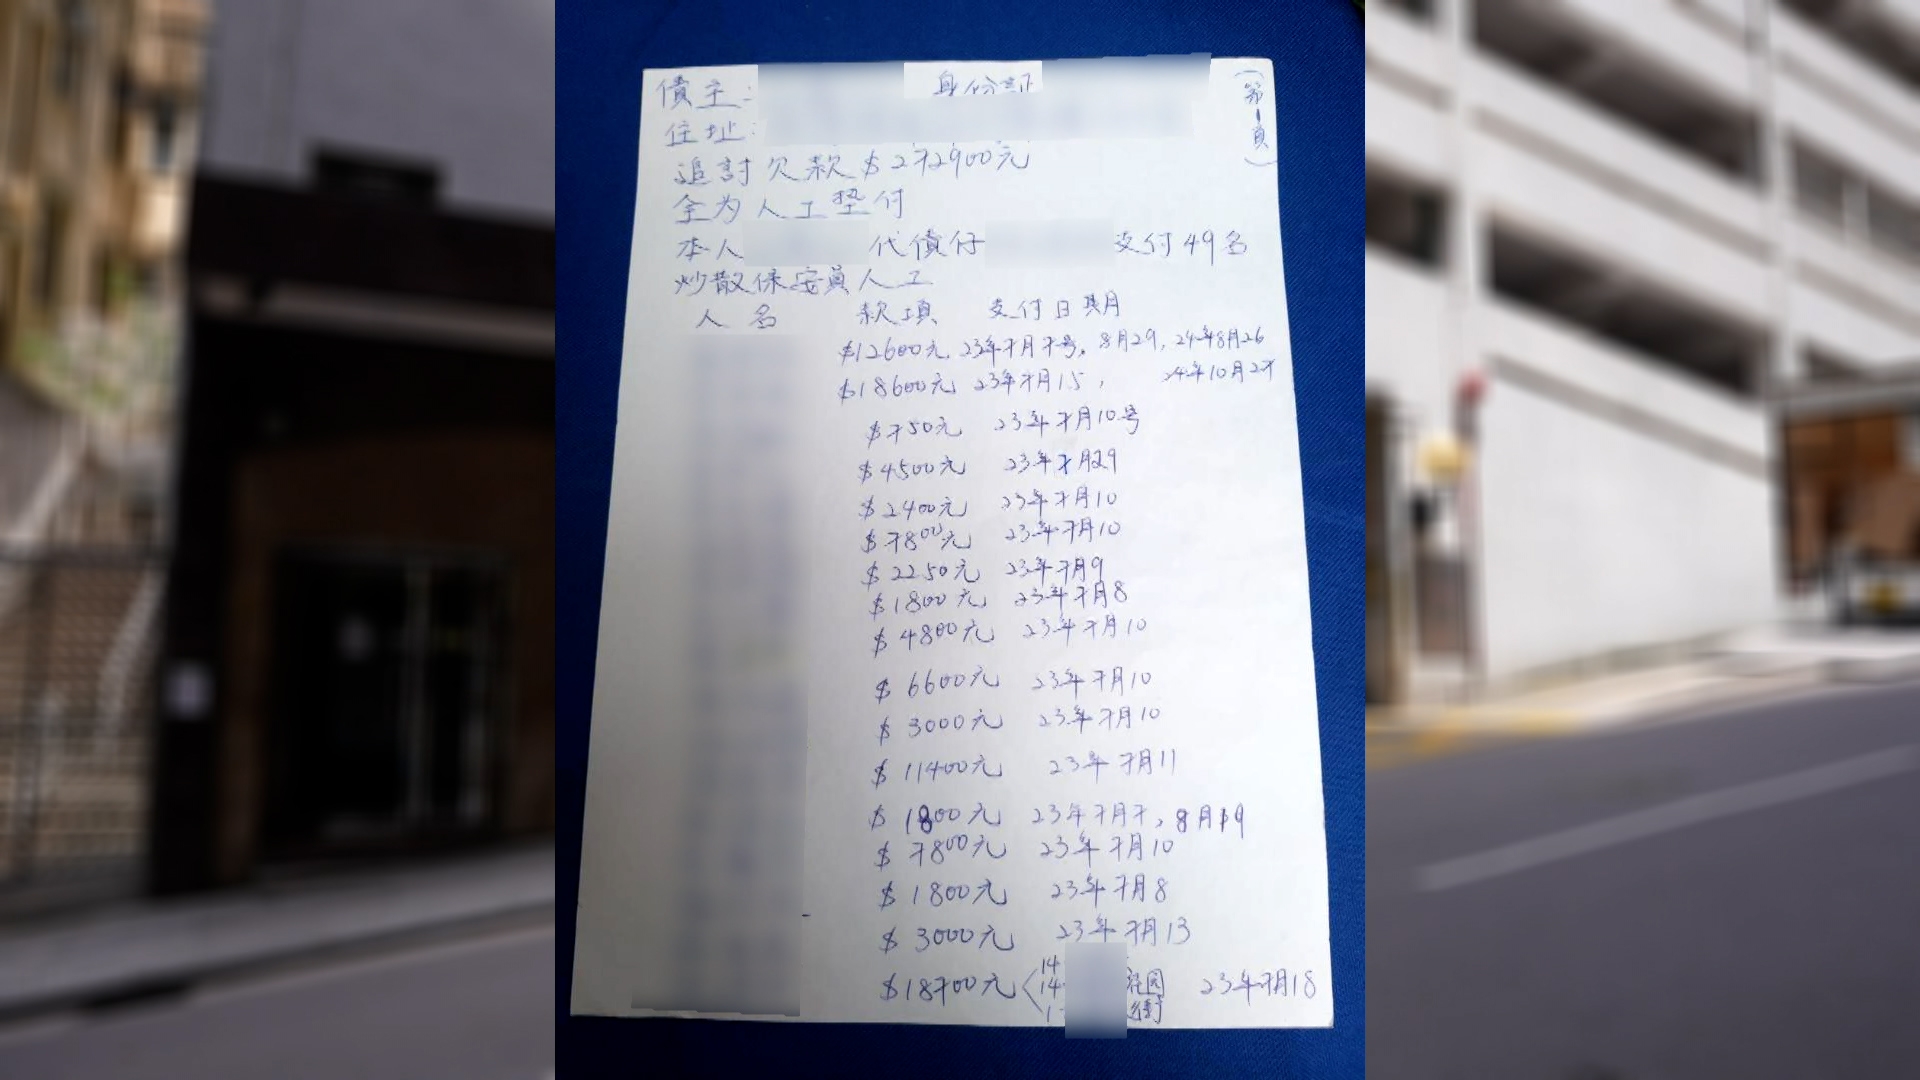 債主: 身份証
(第1頁)
住址:
追討欠款$272900元
全为人工垫付
本人 代債仔 支付49名
炒散保安員人工
人名 款項 支付日期
$12600元, 23年7月7号, 8月29, 24年8月26
$18600元 23年7月15, 24年10月27
$750元 23年7月10号
$4500元 23年7月29
$2400元 23年7月10
$7800元 23年7月10
$2250元 23年7月9
$1800元 23年7月8
$4800元 23年7月10
$6600元 23年7月10
$3000元 23年7月10
$11400元 23年7月11
$1800元 23年7月7, 8月19
$7800元 23年7月10
$1800元 23年7月8
$3000元 23年7月13
14
$18700元 14 花园 23年7月18
1 街